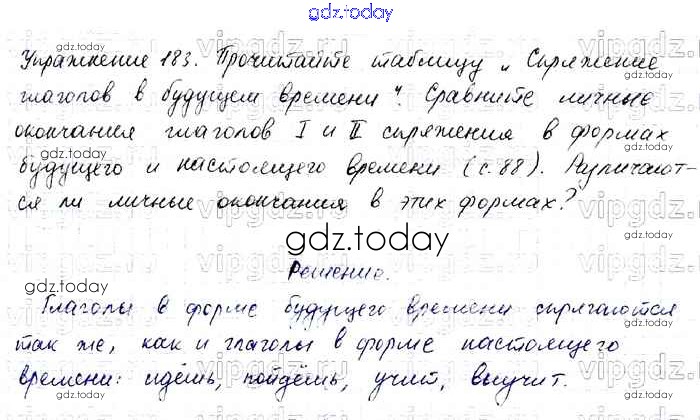 gdz.today
Упражнение 183. Прочитайте таблицу „Спряжение
глаголов в будущем времени“. Сравните личные
окончания глаголов I и II спряжения в формах
будущего и настоящего времени (с. 88). Различают-
ся ли личные окончания в этих формах?
gdz.today
Решение.
Глаголы в форме будущего времени спрягаются
так же, как и глаголы в форме настоящего
времени: идёшь, пойдёшь, учит, выучит.